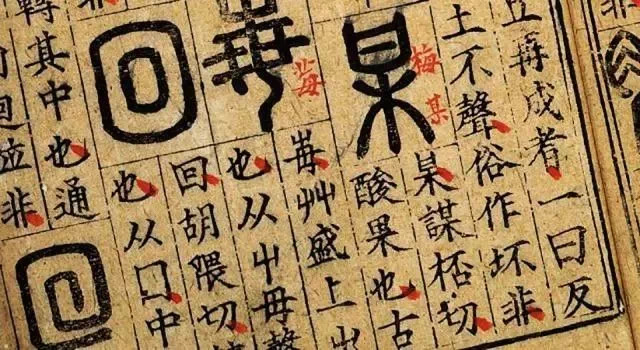 再成者一曰反
土不聲俗作坏非
某
梅
某
某謀桮切
酸果也古
每
每艸盛上出
也从屮母聲
回
回胡隈切
也从囗中
轉其中也通
迴並非